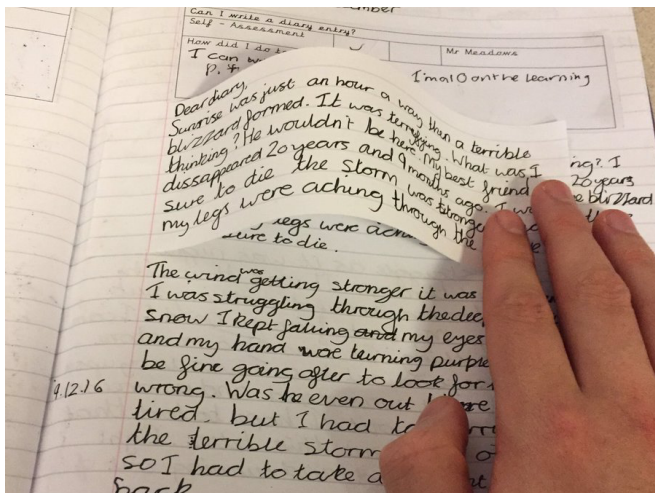 ember
Can I write a diary entry?
Self - Assessment
How did I do
Mr Meadows
I can
I'm 10 on the learning
P.
Dear diary,
Sunrise was just an hour a way then a terrible
blizzard formed. It was terrefying. What was I
thinking? He wouldn't be here. My best friend
dissappeared 20 years and 9 months ago. I
sure to die the storm was stronger
my legs were aching through the
ing?. I
20 years
blizzard
legs were
sure to die.
The wind was getting stronger it was
I was struggling through the
snow I kept falling and my eyes
and my hand were turning purple
be fine going after to look for
9.12.16
wrong. Was he even out
tired, but I had
the terrible storm
so I had to take a
back